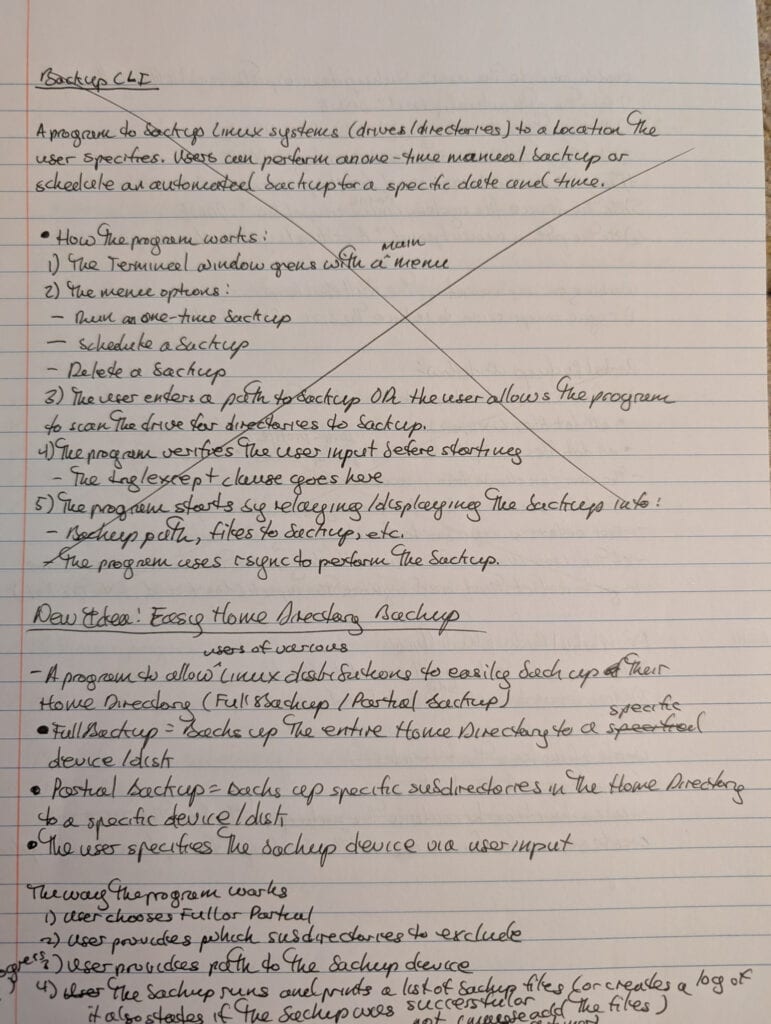 Backup CLI
A program to backup Linux systems (drives/directories) to a location the
user specifies. Users can perform an one-time manual backup or
schedule an automated backup for a specific date and time.
• How the program works:
main
1) The Terminal window opens with a ^ menu
2) The menu options:
- Run an one-time backup
- Schedule a backup
- Delete a backup
3) The user enters a path to backup OR the user allows the program
to scan the drive for directories to backup.
4) The program verifies the user input before starting
- The try/except clause goes here
5) The program starts by relaying/displaying the backup info:
- Backup path, files to backup, etc.
- The program uses rsync to perform the backup.
New Idea: Easy Home Directory Backup
users of various
- A program to allow ^ Linux distributions to easily back up their
Home Directory (Full Backup / Partial Backup)
specific
• Full Backup = Backs up the entire Home Directory to a
device/disk
• Partial Backup = backs up specific subdirectories in the Home Directory
to a specific device/disk
• The user specifies the backup device via user input
The way the program works
1) User chooses Full or Partial
2) User provides which subdirectories to exclude
3) User provides path to the backup device
4) User The backup runs and prints a list of backup files (or creates a log of
it also states if the backup was successful or
not the files)